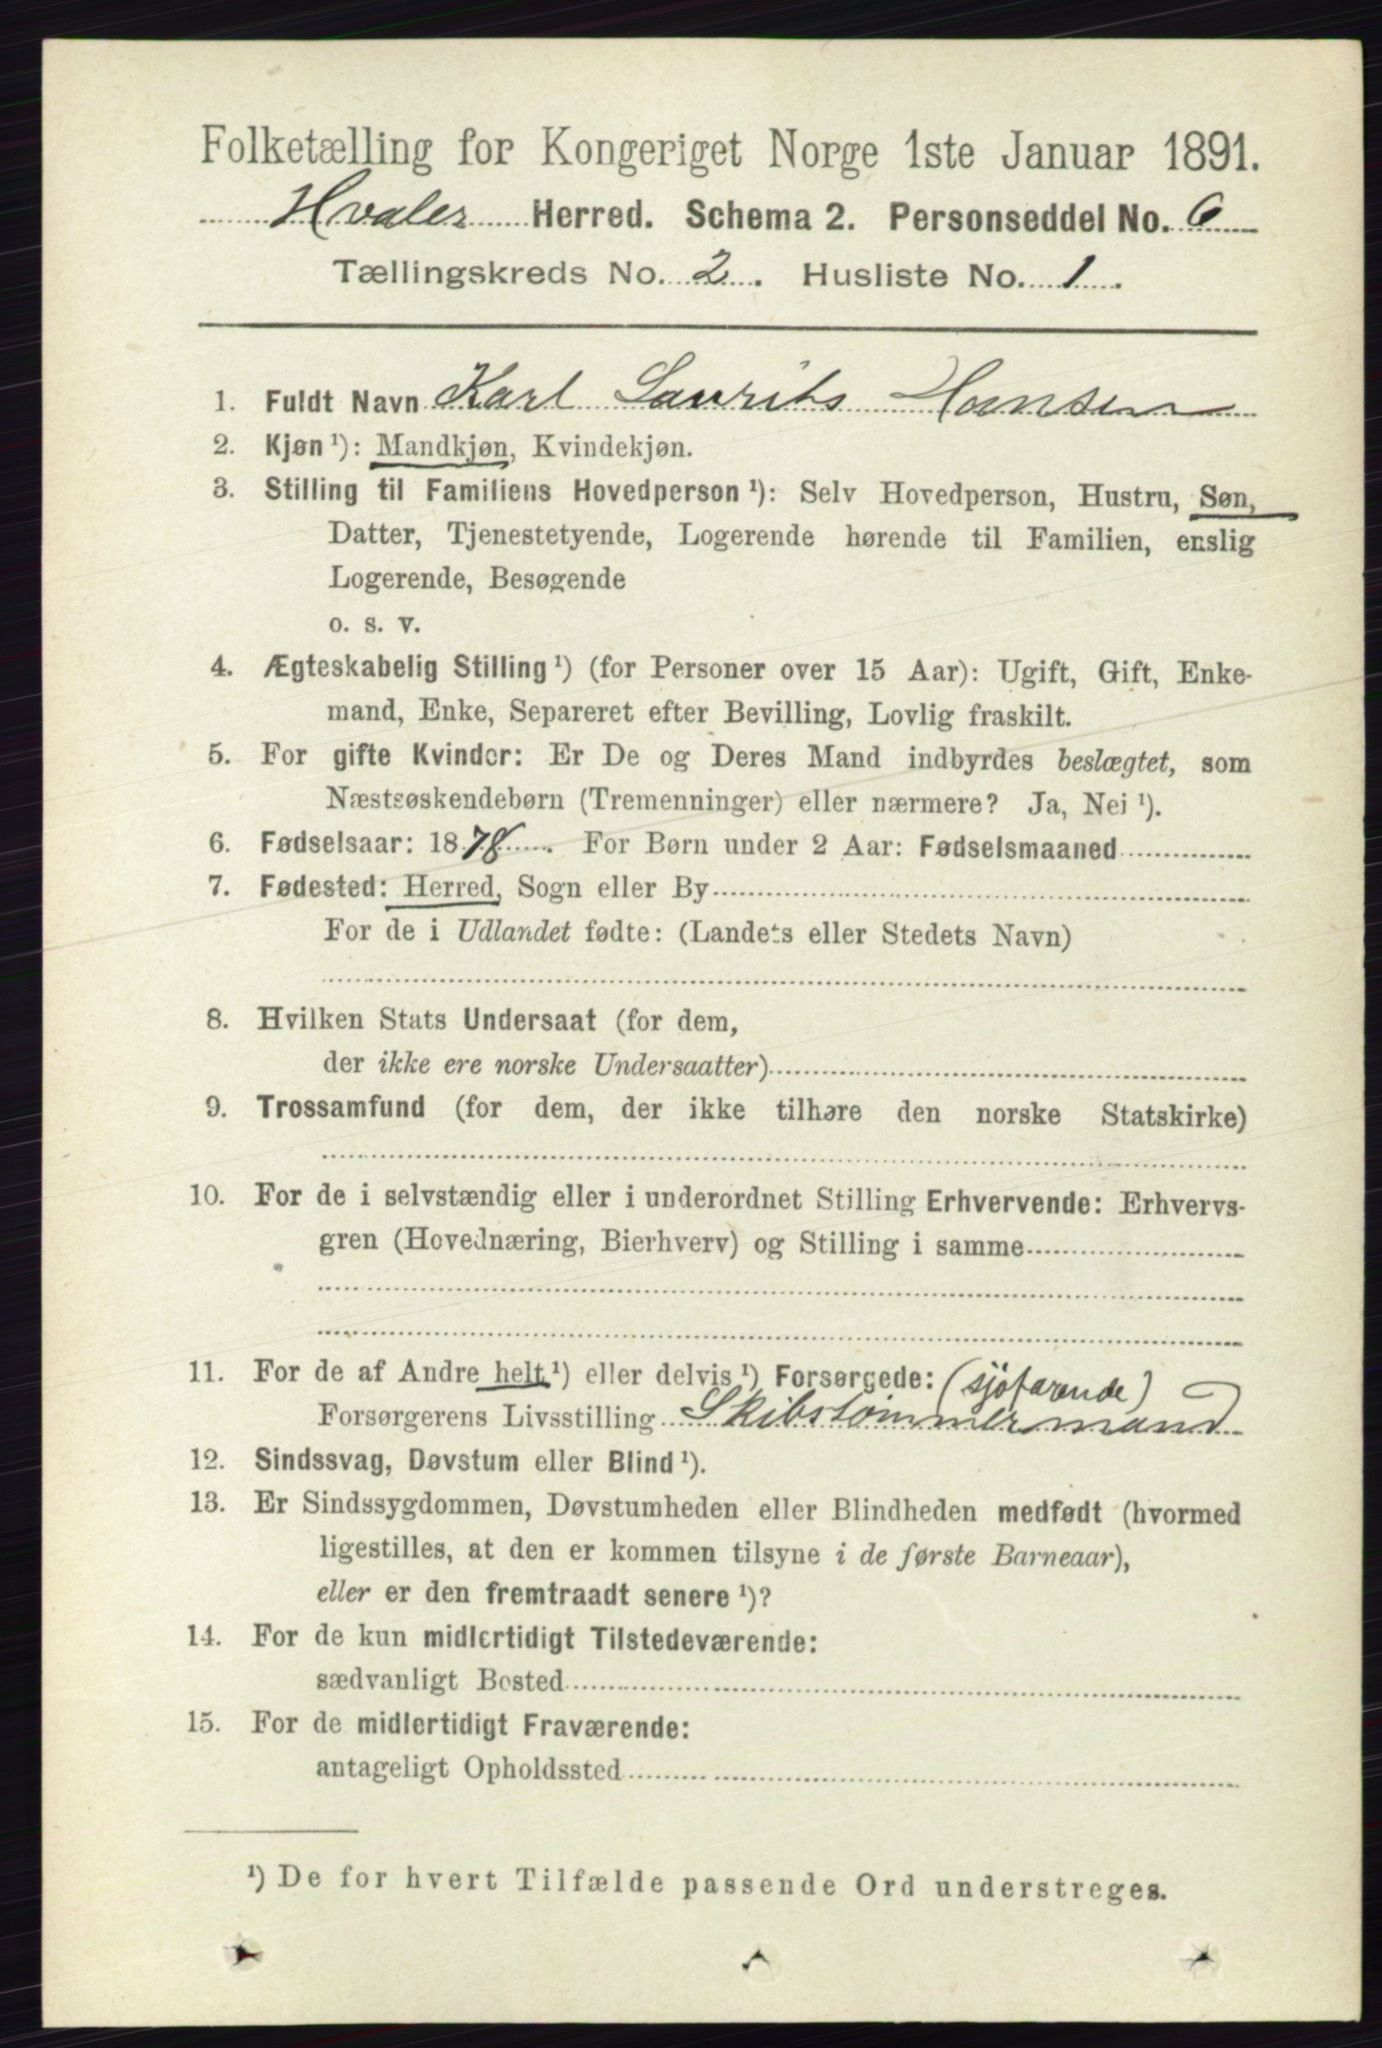 Folketælling for Kongeriget Norge 1ste Januar 1891.
Hvaler Herred. Schema 2. Personseddel No. 6
Tællingskreds No. 2. Husliste No. 1.
1. Fuldt Navn Karl Laurits Hansen
2. Kjøn ¹): Mandkjøn, Kvindekjøn.
3. Stilling til Familiens Hovedperson ¹): Selv Hovedperson, Hustru, Søn,
Datter, Tjenestetyende, Logerende hørende til Familien, enslig
Logerende, Besøgende
o. s. v.
4. Ægteskabelig Stilling ¹) (for Personer over 15 Aar): Ugift, Gift, Enke-
mand, Enke, Separeret efter Bevilling, Lovlig fraskilt.
5. For gifte Kvinder: Er De og Deres Mand indbyrdes beslægtet, som
Næstsøskendebørn (Tremenninger) eller nærmere? Ja, Nei ¹).
6. Fødselsaar: 1878. For Børn under 2 Aar: Fødselsmaaned
7. Fødested: Herred, Sogn eller By
For de i Udlandet fødte: (Landets eller Stedets Navn)
8. Hvilken Stats Undersaat (for dem,
der ikke ere norske Undersaatter)
9. Trossamfund (for dem, der ikke tilhøre den norske Statskirke)
10. For de i selvstændig eller i underordnet Stilling Erhvervende: Erhvervs-
gren (Hovednæring, Bierhverv) og Stilling i samme
11. For de af Andre helt ¹) eller delvis ¹) Forsørgede: (sjöfarende)
Forsørgerens Livsstilling Skibstömmermand
12. Sindssvag, Døvstum eller Blind ¹).
13. Er Sindssygdommen, Døvstumheden eller Blindheden medfødt (hvormed
ligestilles, at den er kommen tilsyne i de første Barneaar),
eller er den fremtraadt senere ¹)?
14. For de kun midlertidigt Tilstedeværende:
sædvanligt Bosted
15. For de midlertidigt Fraværende:
antageligt Opholdssted
¹) De for hvert Tilfælde passende Ord understreges.